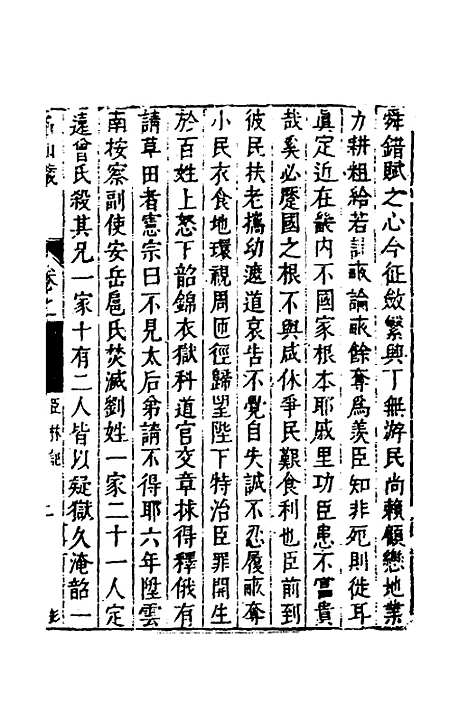 舜錯賦之心今征斂繁興丁無游民尚賴顧戀地業
力耕粗給若計畝論畝餘奪爲羨臣知非死則徙耳
眞定近在畿内不國家根本耶戚里功臣患不當貴
哉奚必蹙國之根不與咸休爭民艱食利也臣前到
彼民扶老攜幼遮道哀告不覺自失誠不忍履畝奪
小民衣食地環視周匝徑歸望陛下特治臣罪開生
於百姓上怒下詔錦衣獄科道官交章捄得釋俄有
請草田者憲宗曰不見太后弟請不得耶六年陞雲
南按察副使安岳扈氏焚滅劉姓一家二十一人定
遠曾氏殺其兄一家十有二人皆以疑獄久淹詔一
名山藏 卷之 臣林記